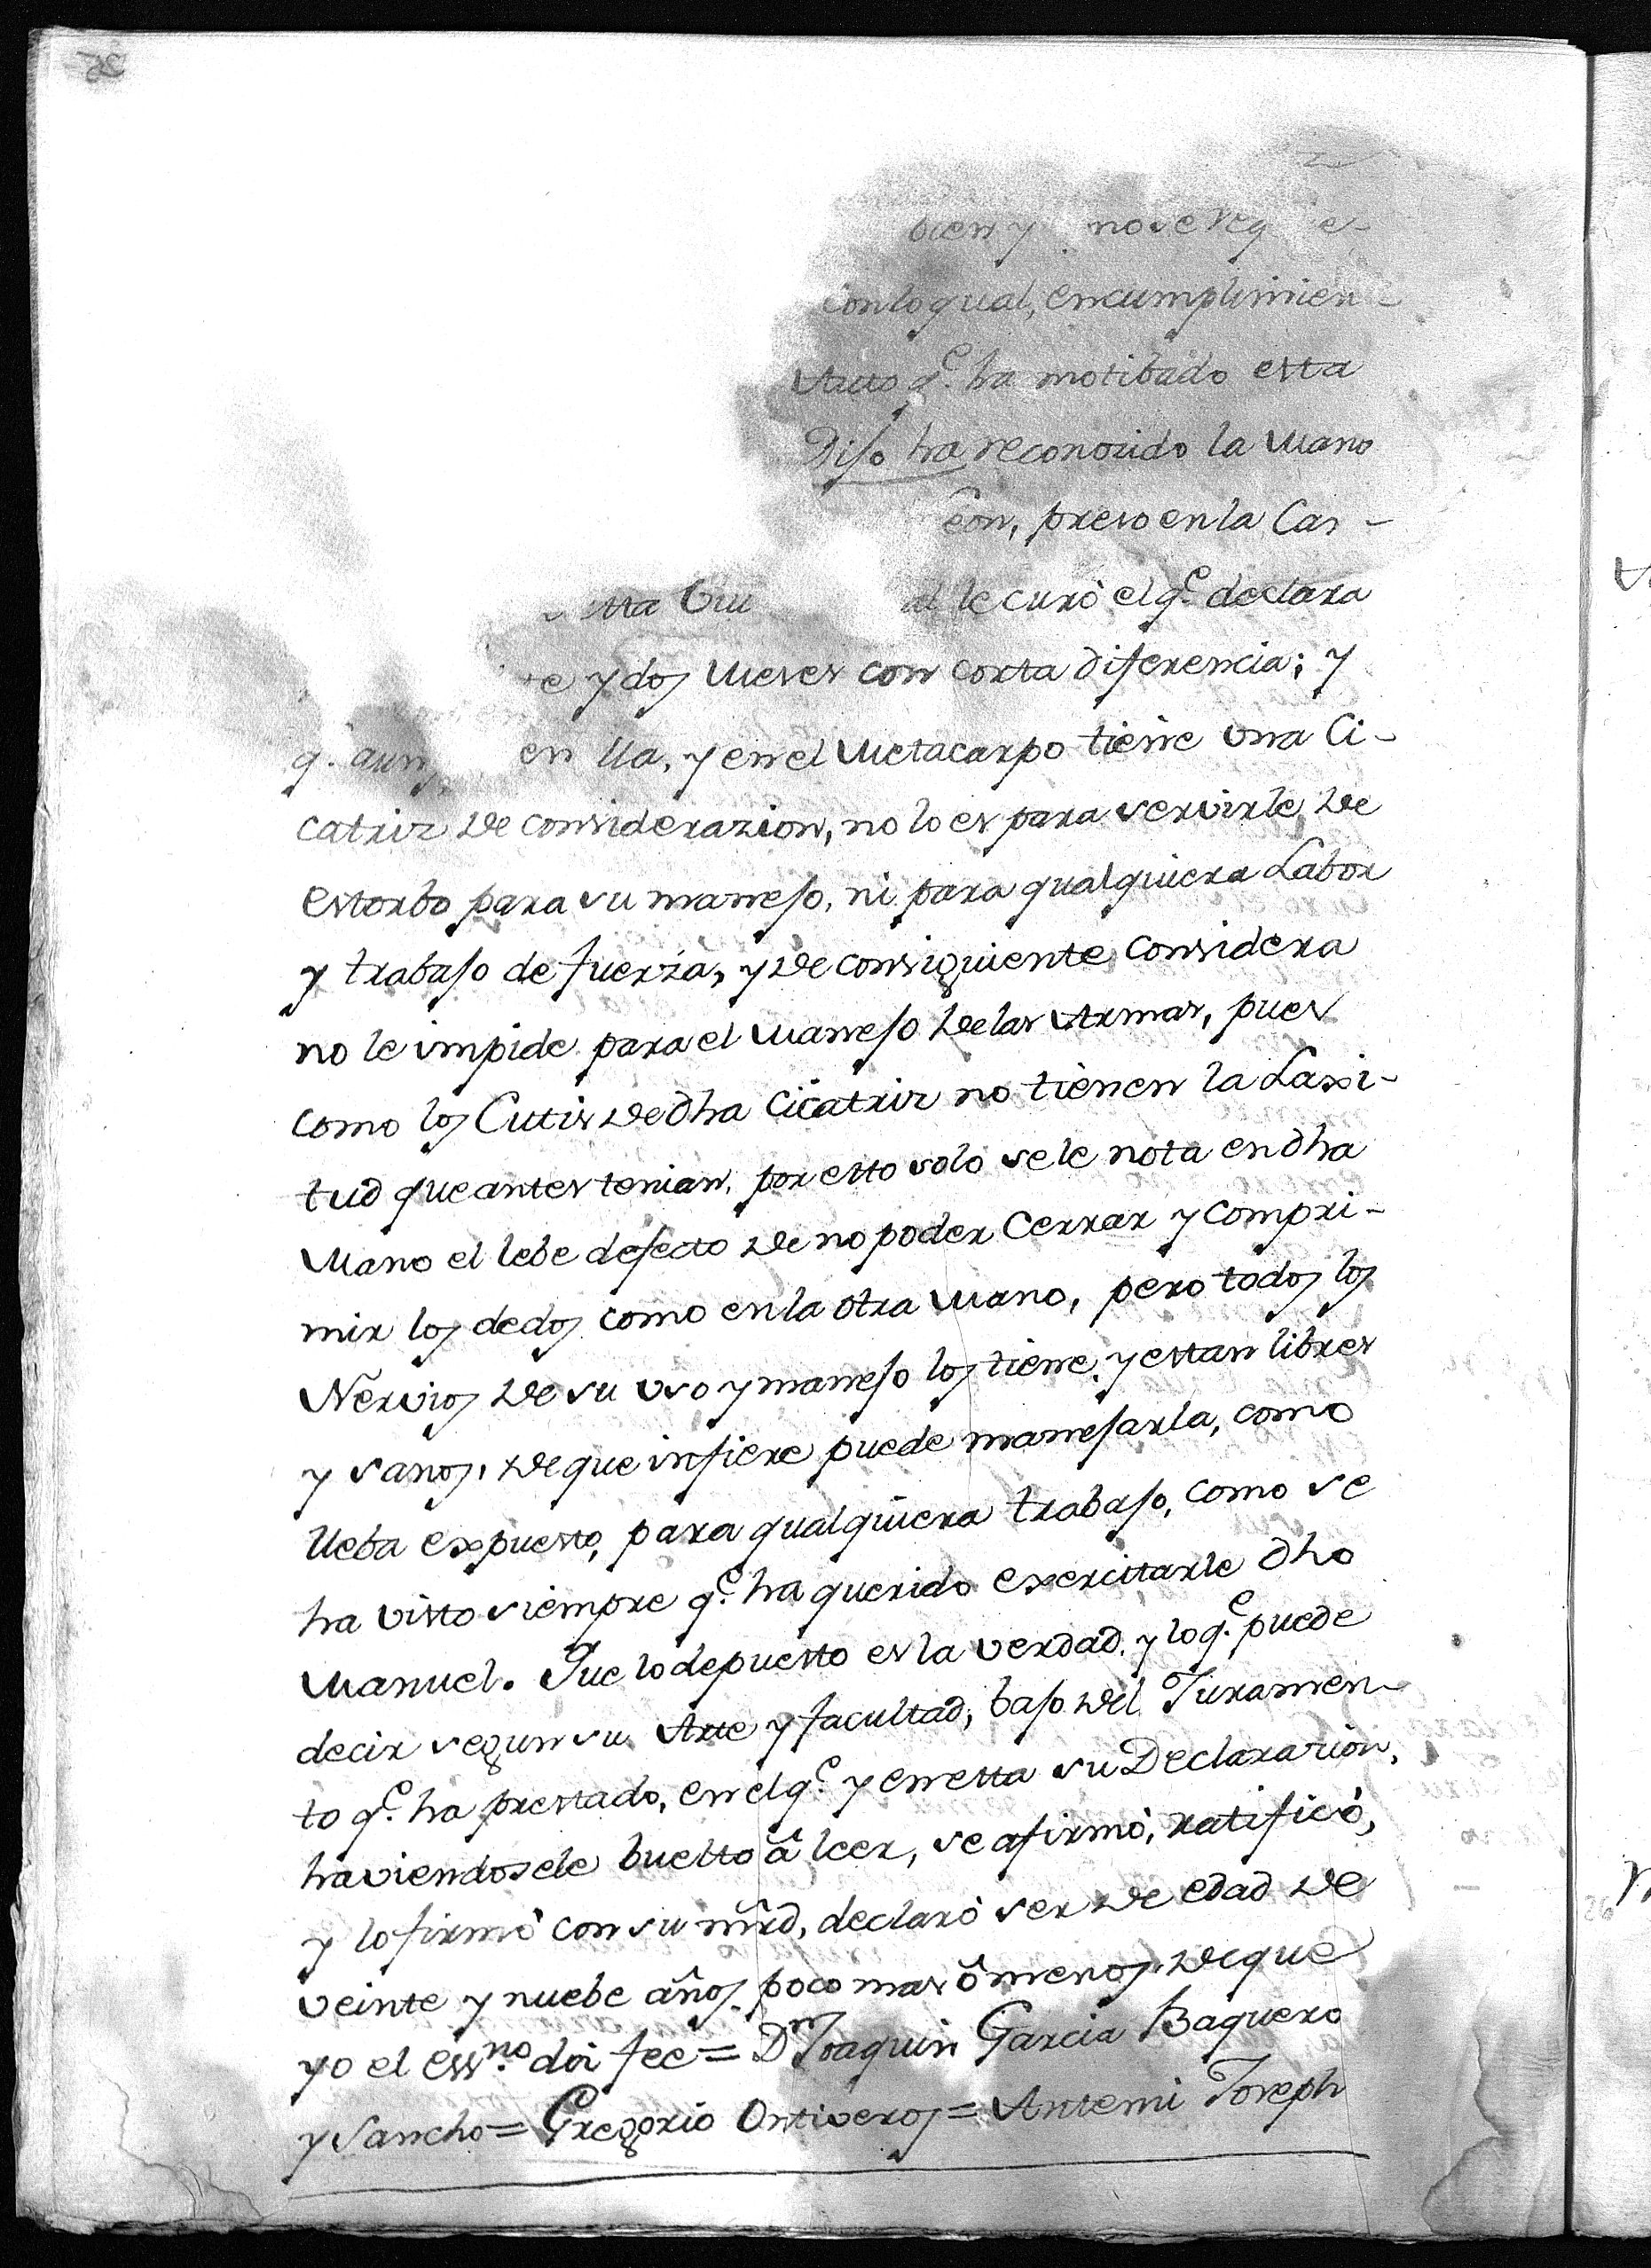 bien y no se req e-
con lo qual, en cumplimien-
Auto q.e ha motibado esta
Dijo ha reconozido la Mano
eon, preso en la Car-
esta Ciu al le curò el q.e declara
e y dos Meses con corta diferencia; y
q.e aun en lla, y en el Metacarpo tiene una Ci-
catriz de considerazion, no lo es para servirle de
estorbo para su manejo, ni para qualquiera Labor
y trabajo de fuerza, y de consiguiente considera
no le impide para el Manejo de las Armas, pues
como los Cutis de dha Cicatriz no tienen la Laxi-
tud que antes tenian, por esto solo se le nota en dha
Mano el lebe defecto de no poder Cerrar y compri-
mir los dedos como en la otra Mano, pero todos los
Nervios de su uso y manejo los tiene, y estan libres
y sanos, de que infiere puede manejarla, como
lleba expuesto, para qualquiera trabajo, como se
ha visto siempre q.e ha querido exercitarle dho
Manuel. Que lo depuesto es la verdad, y lo q.e puede
decir segun su Arte y facultad, bajo del Juramen-
to q.e ha prestado, en el q.e y en esta su Declarazion,
haviendosele buelto â leer, se afirmò, ratificò,
y lo firmò con su mrd, declarò ser de edad de
veinte y nuebe años, poco mas ô menos, de que
yo el ess.no doi fee = D.n Joaquin Garcia Baquero
y Sancho = Gregorio Ontiveros = Antemi Joseph